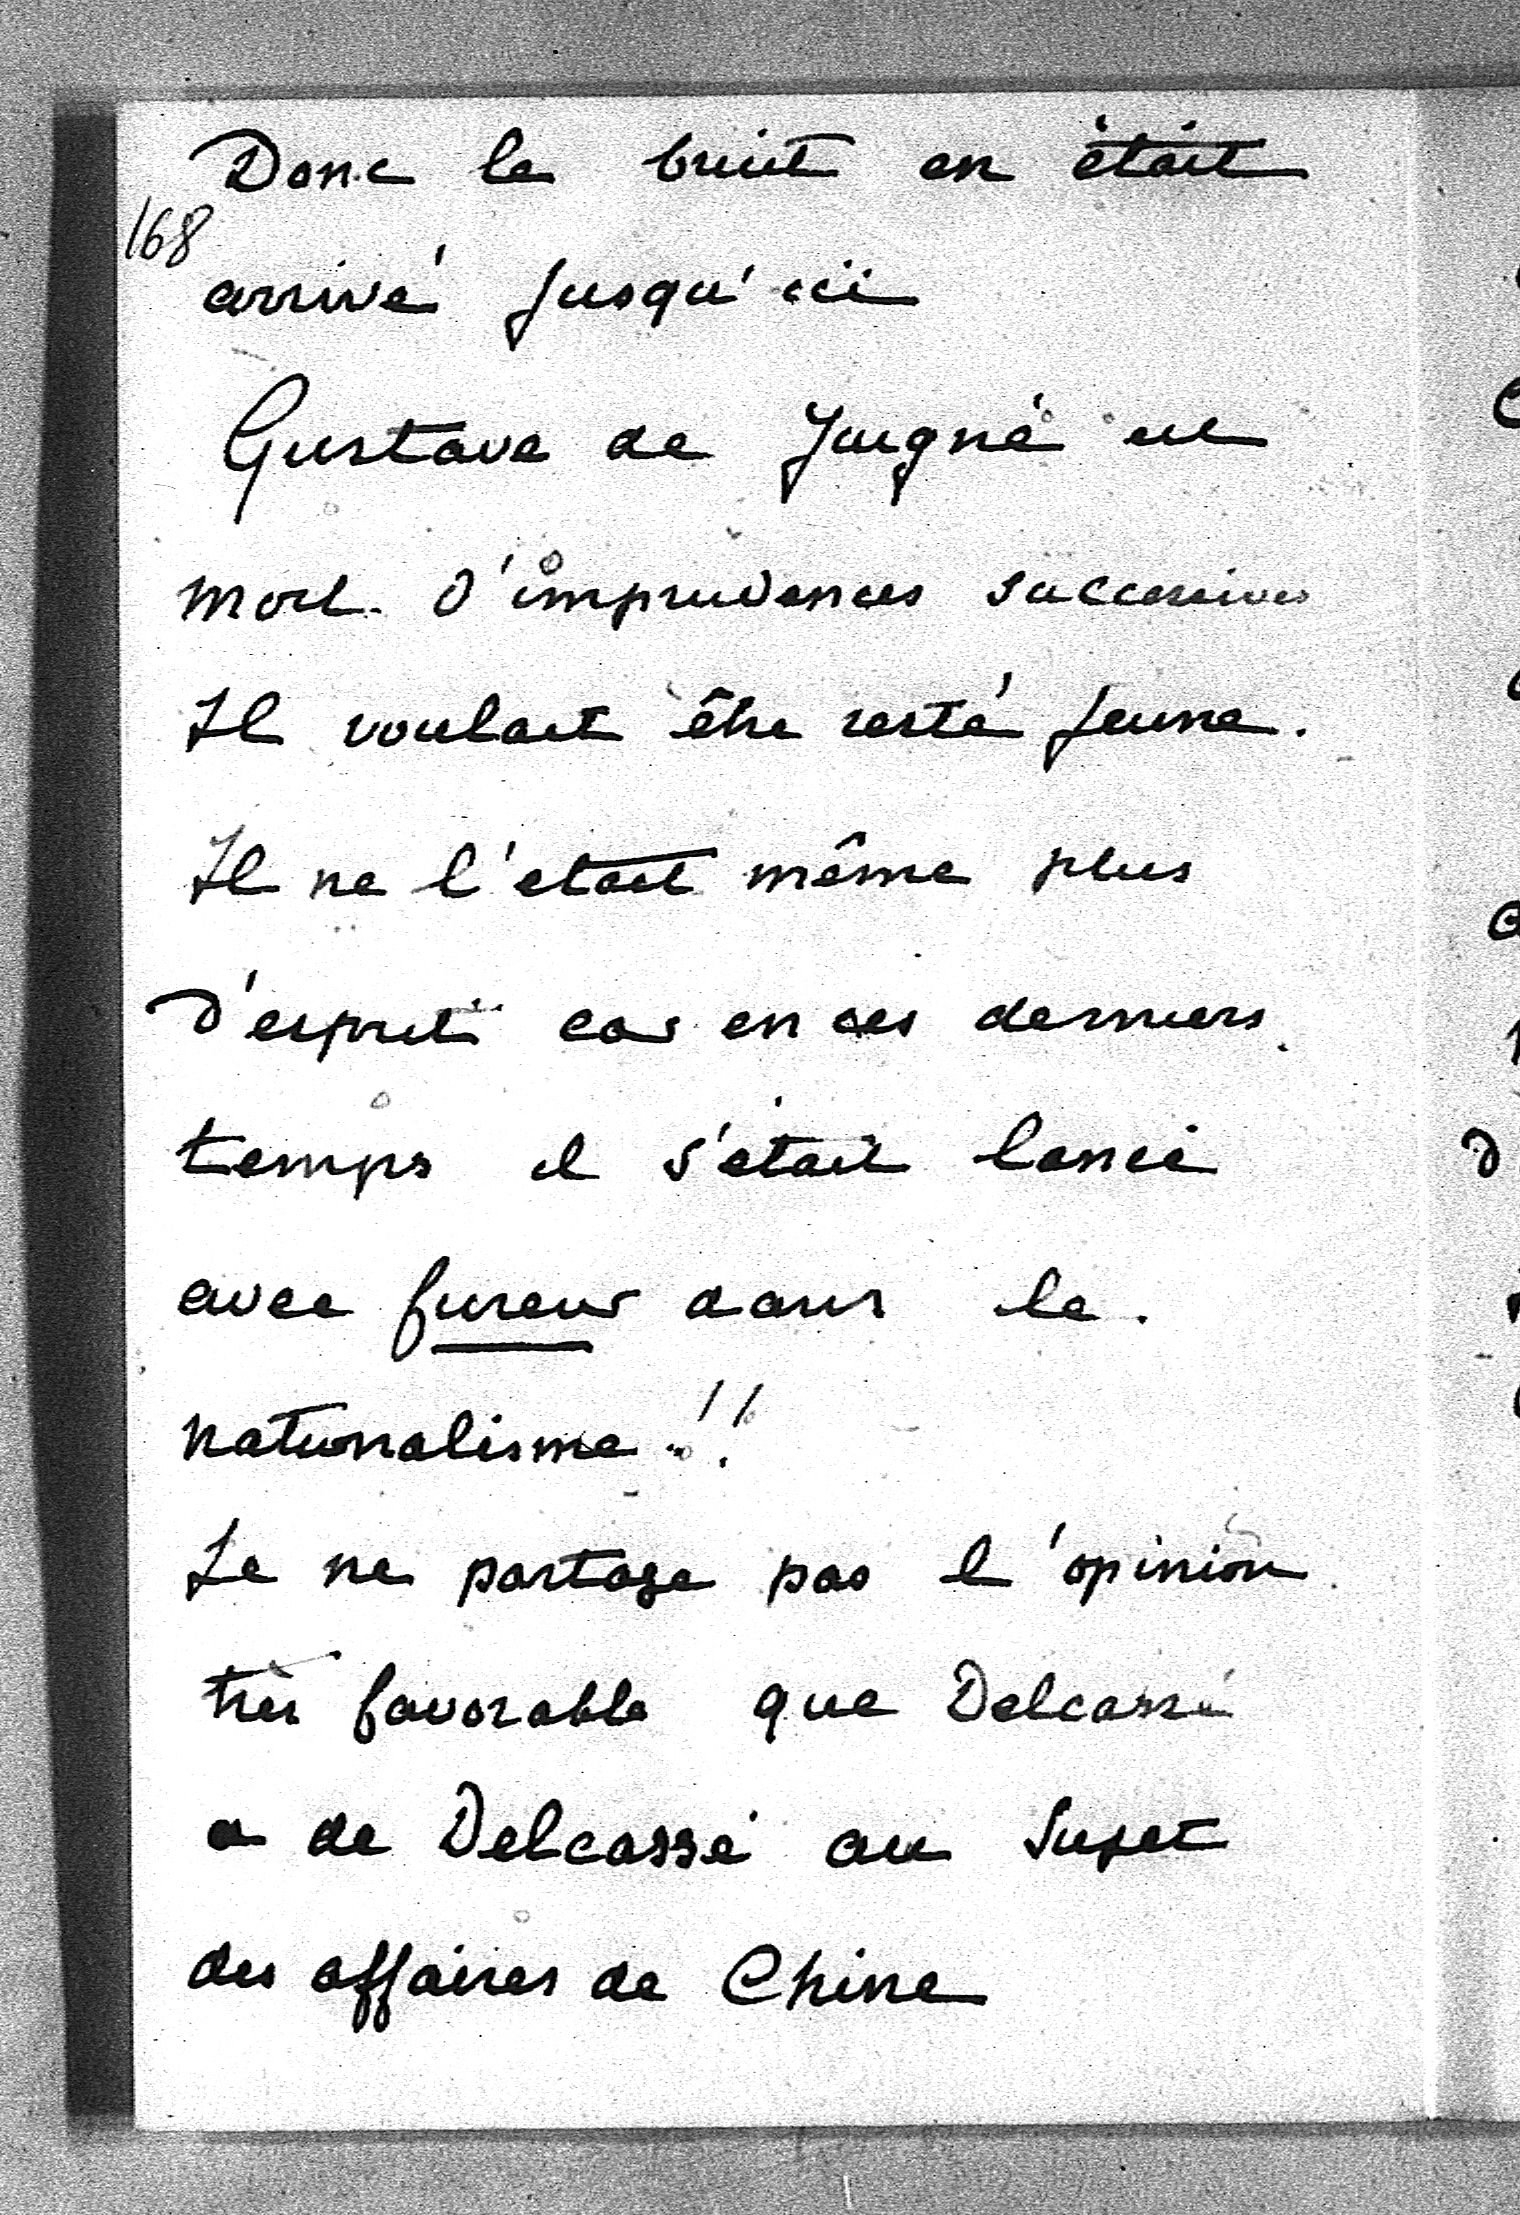 Donc le bruit en était
168
arrivé jusqu'ici
Gustave de Juigné est
mort d'imprudences successives
Il voulait être resté jeune.
Il ne l'etait même plus
d'esprit car en ces derniers
temps il s'était lancé
avec fureur dans le
nationalisme !!
Je ne partage pas l'opinion
très favorable que Delcassé
a de Delcassé au sujet
des affaires de Chine